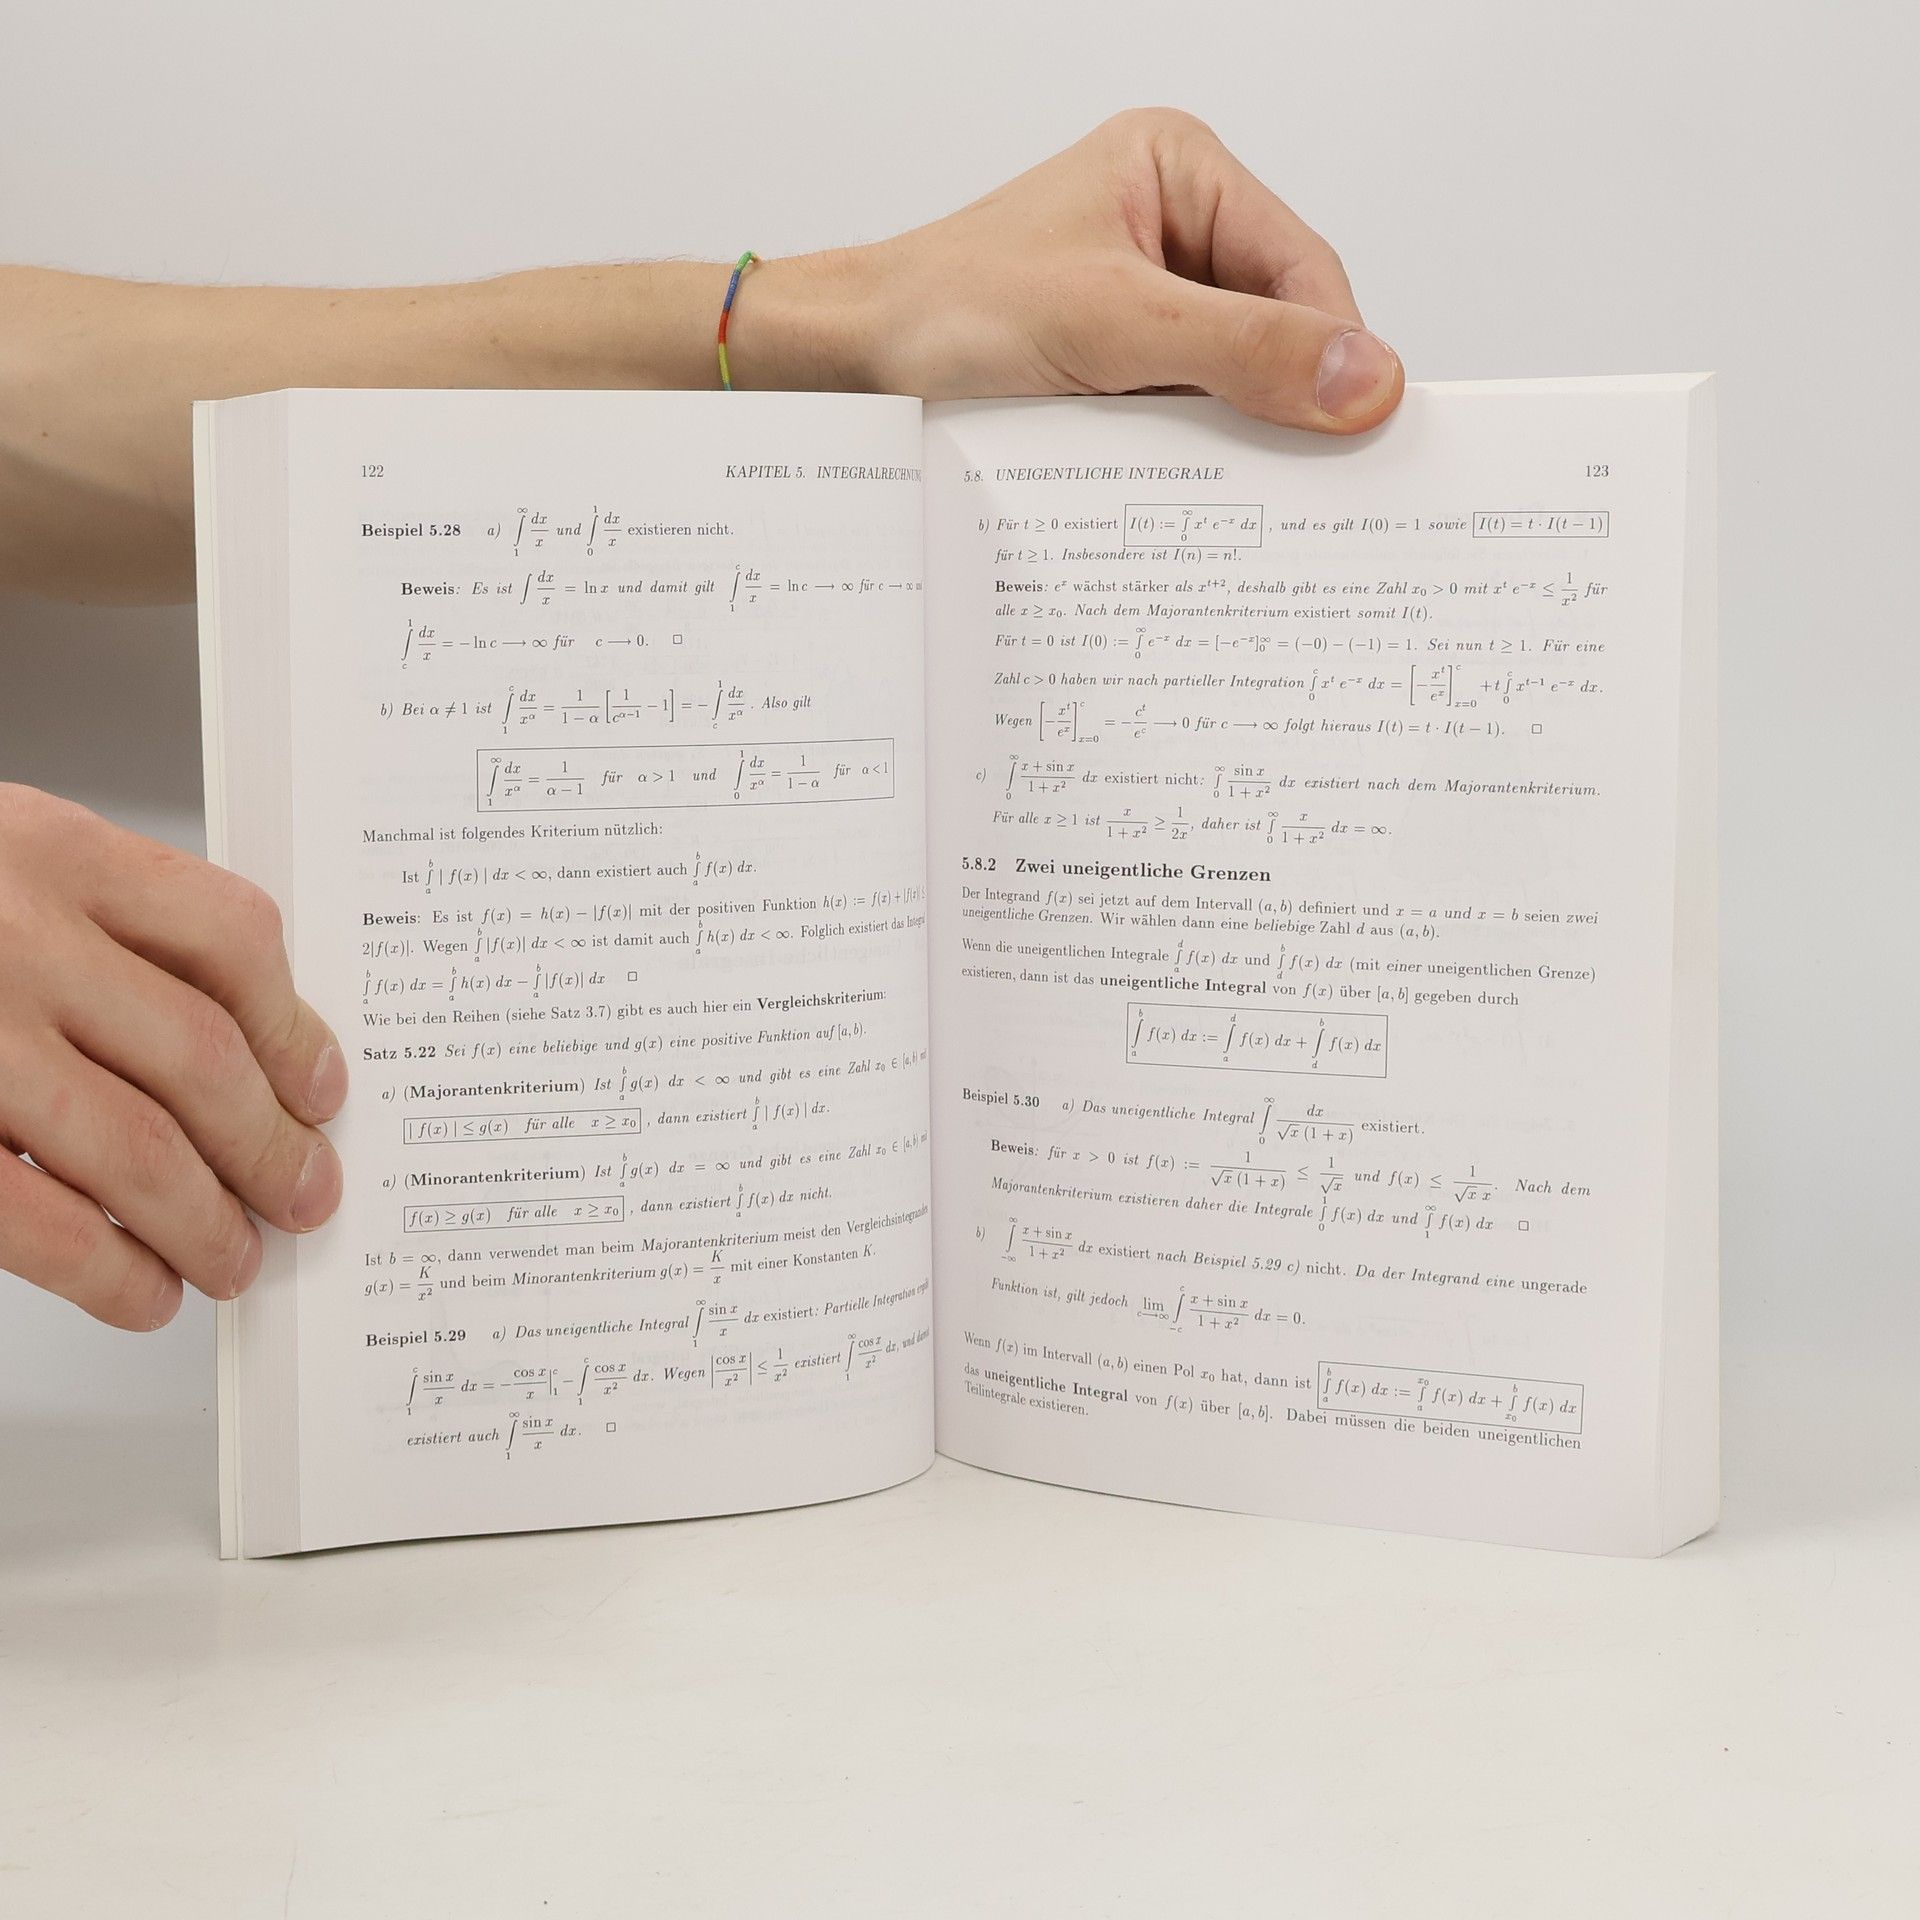 122 KAPITEL 5. INTEGRALRECHNUNG
Beispiel 5.28 a) ∫₁^∞ dx/x und ∫₀^1 dx/x existieren nicht.
Beweis: Es ist ∫ dx/x = ln x und damit gilt ∫₁^c dx/x = ln c ⟶ ∞ für c → ∞
∫_c^1 dx/x = − ln c ⟶ ∞ für c ⟶ 0. □
b) Bei α ≠ 1 ist ∫₁^c dx/x^α = 1/(1 − α) [1/c^(α−1) − 1] = − ∫_c^1 dx/x^α. Also gilt
∫₁^∞ dx/x^α = 1/(α − 1) für α > 1 und ∫₀^1 dx/x^α = 1/(1 − α) für α < 1
Manchmal ist folgendes Kriterium nützlich:
Ist ∫_a^b | f(x) | dx < ∞, dann existiert auch ∫_a^b f(x) dx.
Beweis: Es ist f(x) = h(x) − |f(x)| mit der positiven Funktion h(x) := f(x) + |f(x)| ≤
2|f(x)|. Wegen ∫_a^b |f(x)| dx < ∞ ist damit auch ∫_a^b h(x) dx < ∞. Folglich existiert das Integral
∫_a^b f(x) dx = ∫_a^b h(x) dx − ∫_a^b |f(x)| dx □
Wie bei den Reihen (siehe Satz 3.7) gibt es auch hier ein Vergleichskriterium:
Satz 5.22 Sei f(x) eine beliebige und g(x) eine positive Funktion auf [a, b).
a) (Majorantenkriterium) Ist ∫_a^b g(x) dx < ∞ und gibt es eine Zahl x₀ ∈ [a, b) mit
| f(x) | ≤ g(x) für alle x ≥ x₀, dann existiert ∫_a^b | f(x) | dx.
a) (Minorantenkriterium) Ist ∫_a^b g(x) dx = ∞ und gibt es eine Zahl x₀ ∈ [a, b) mit
f(x) ≥ g(x) für alle x ≥ x₀, dann existiert ∫_a^b f(x) dx nicht.
Ist b = ∞, dann verwendet man beim Majorantenkriterium meist den Vergleichsintegranden
g(x) = K/x² und beim Minorantenkriterium g(x) = K/x mit einer Konstanten K.
Beispiel 5.29 a) Das uneigentliche Integral ∫₁^∞ sin x/x dx existiert: Partielle Integration
∫₁^c sin x/x dx = − cos x/x |₁^c − ∫₁^c cos x/x² dx. Wegen |cos x/x²| ≤ 1/x² existiert ∫₁^∞ cos x/x² dx, und damit
existiert auch ∫₁^∞ sin x/x dx. □
5.8. UNEIGENTLICHE INTEGRALE 123
b) Für t ≥ 0 existiert I(t) := ∫₀^∞ x^t e^(−x) dx, und es gilt I(0) = 1 sowie I(t) = t · I(t − 1)
für t ≥ 1. Insbesondere ist I(n) = n!.
Beweis: e^x wächst stärker als x^(t+2), deshalb gibt es eine Zahl x₀ > 0 mit x^t e^(−x) ≤ 1/x² für
alle x ≥ x₀. Nach dem Majorantenkriterium existiert somit I(t).
Für t = 0 ist I(0) := ∫₀^∞ e^(−x) dx = [−e^(−x)]₀^∞ = (−0) − (−1) = 1. Sei nun t ≥ 1. Für eine
Zahl c > 0 haben wir nach partieller Integration ∫₀^c x^t e^(−x) dx = [− x^t/e^x]_(x=0)^c + t ∫₀^c x^(t−1) e^(−x) dx.
Wegen [− x^t/e^x]_(x=0)^c = − c^t/e^c ⟶ 0 für c ⟶ ∞ folgt hieraus I(t) = t · I(t − 1). □
c) ∫₀^∞ (x + sin x)/(1 + x²) dx existiert nicht: ∫₀^∞ sin x/(1 + x²) dx existiert nach dem Majorantenkriterium.
Für alle x ≥ 1 ist x/(1 + x²) ≥ 1/2x, daher ist ∫₀^∞ x/(1 + x²) dx = ∞.
5.8.2 Zwei uneigentliche Grenzen
Der Integrand f(x) sei jetzt auf dem Intervall (a, b) definiert und x = a und x = b seien zwei
uneigentliche Grenzen. Wir wählen dann eine beliebige Zahl d aus (a, b).
Wenn die uneigentlichen Integrale ∫_a^d f(x) dx und ∫_d^b f(x) dx (mit einer uneigentlichen Grenze)
existieren, dann ist das uneigentliche Integral von f(x) über [a, b] gegeben durch
∫_a^b f(x) dx := ∫_a^d f(x) dx + ∫_d^b f(x) dx
Beispiel 5.30 a) Das uneigentliche Integral ∫₀^∞ dx/(√x (1 + x)) existiert.
Beweis: für x > 0 ist f(x) := 1/(√x (1 + x)) ≤ 1/√x und f(x) ≤ 1/(√x x). Nach dem
Majorantenkriterium existieren daher die Integrale ∫₀^1 f(x) dx und ∫₁^∞ f(x) dx □
b) ∫_(−∞)^∞ (x + sin x)/(1 + x²) dx existiert nach Beispiel 5.29 c) nicht. Da der Integrand eine ungerade
Funktion ist, gilt jedoch lim_(c→∞) ∫_(−c)^c (x + sin x)/(1 + x²) dx = 0.
Wenn f(x) im Intervall (a, b) einen Pol x₀ hat, dann ist ∫_a^b f(x) dx := ∫_a^(x₀) f(x) dx + ∫_(x₀)^b f(x) dx
das uneigentliche Integral von f(x) über [a, b]. Dabei müssen die beiden uneigentlichen
Teilintegrale existieren.